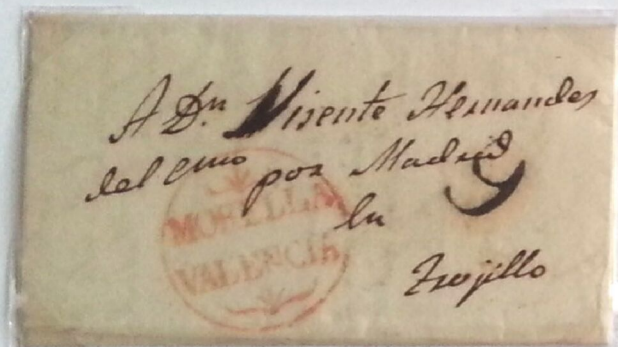 A Dn. Visente Hernandes
del cmo por Madrid
9
MORELLA
VALENCIA
En
Trojillo